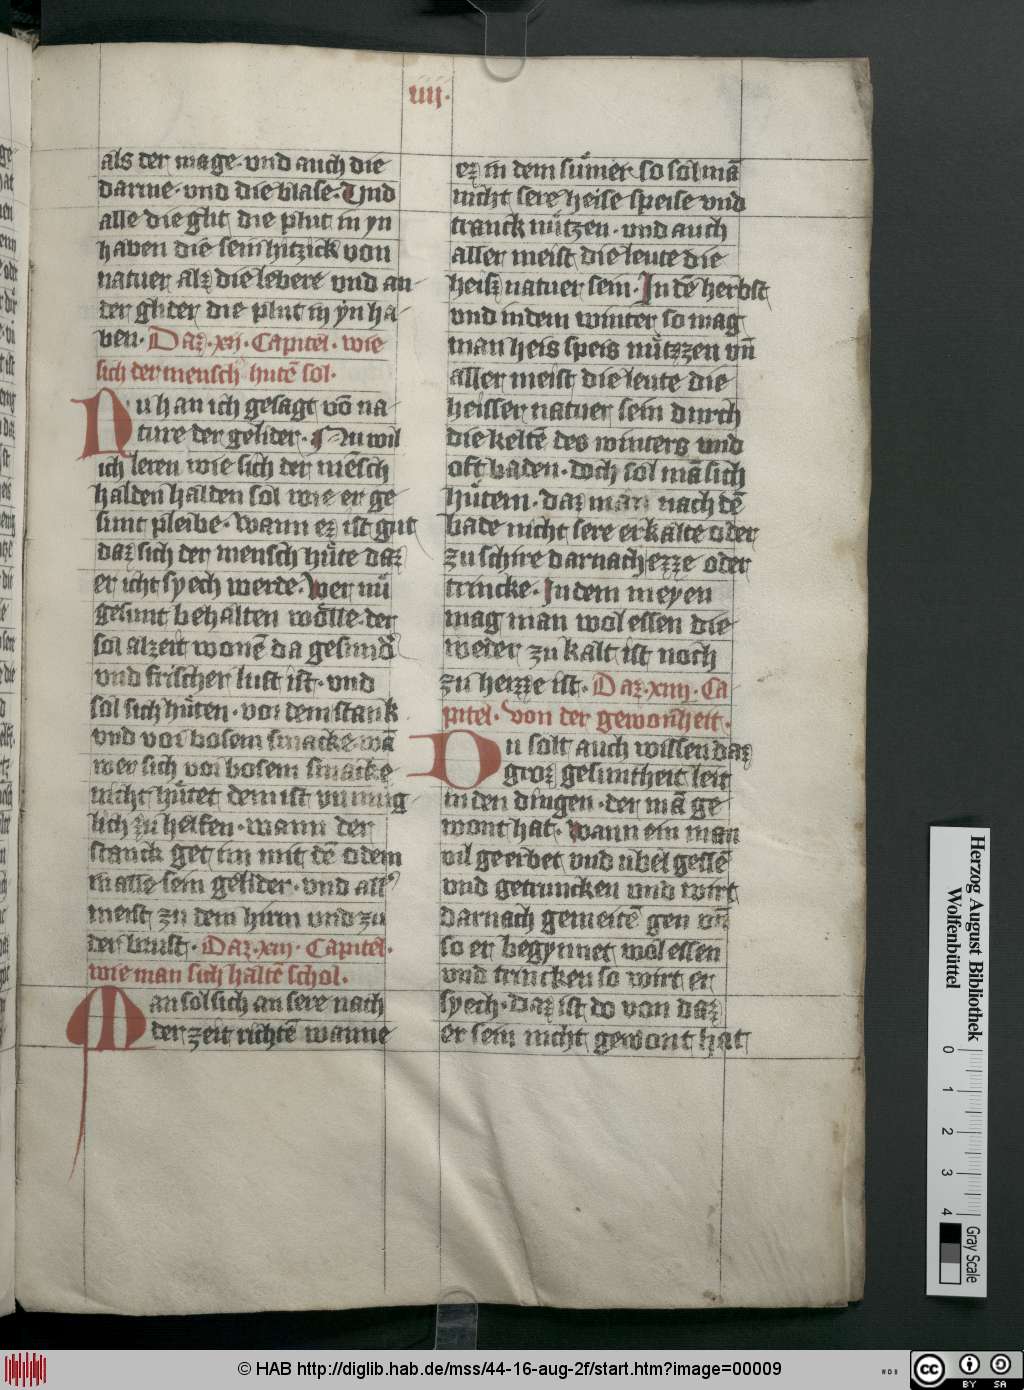 iiij.
als der mage · vnd auch die
darme · vnd die blase · Vnd
alle die glit die plut in yn
haben die sein hitzick von
natuer alz die lebere vnd an
der glider die plut in yn ha
ben · Daz · xii · Capitel · wie
sich der mensch hutē sol ·
Nu han ich gesagt vō na
ture der gelider · Nu wil
ich leren wie sich der mēsch
halden halden sol wie er ge
sunt pleibe · wann ez ist gut
daz sich der mensch hüte daz
er icht syech werde · Wer nü
gesunt behalten wölle · der
sol alzeit wonē da gesund
vnd frischer luft ist · vnd
sol sich hüten · vor dem stank
vnd vor bosem smacke · wā
wer sich vor bosem smacke
nicht hütet dem ist vnmüg
lich zu helfen · wann der
stanck get im mit dē odem
in alle sein gelider · vnd all
meist zu dem hirn vnd zu
der brust · Daz · xiii · Capitel ·
wie man sich haltē schol ·
Man sol sich an sere nach
der zeit richtē wanne
ez in dem sümer so sol mā
nicht sere heise speise vnd
tranck nützen · vnd auch
aller meist die leute die
heisz natuer sein · In dē herbst
vnd in dem winter so mag
man heis speis nützzen vn̄
aller meist die leute die
heisser natuer sein durch
die keltē des winters vnd
oft baden · doch sol mā sich
hütem · daz man nach dē
bade nicht sere erkalte oder
zu schire darnach ezze oder
trincke · In dem meyen
mag man wol essen die
weder zu kalt ist noch
zu heizze ist · Daz · xiiij · Ca
pitel · von der gewonheit ·
Du solt auch wissen daz
groz gesuntheit leit
in den dingen · der mā ge
wont hat · Wann ein man
vil geerbet vnd vbel gessē
vnd getruncken vnd wirt
darnach gemeitē gen vn̄
so er begynnet wol essen
vnd trincken so wirt er
syech · Daz ist do von daz
er sein nicht gewont hat
Herzog August Bibliothek
Wolfenbüttel
0 1 2 3 4
Gray Scale
© HAB http://diglib.hab.de/mss/44-16-aug-2f/start.htm?image=00009
WDB
cc BY SA